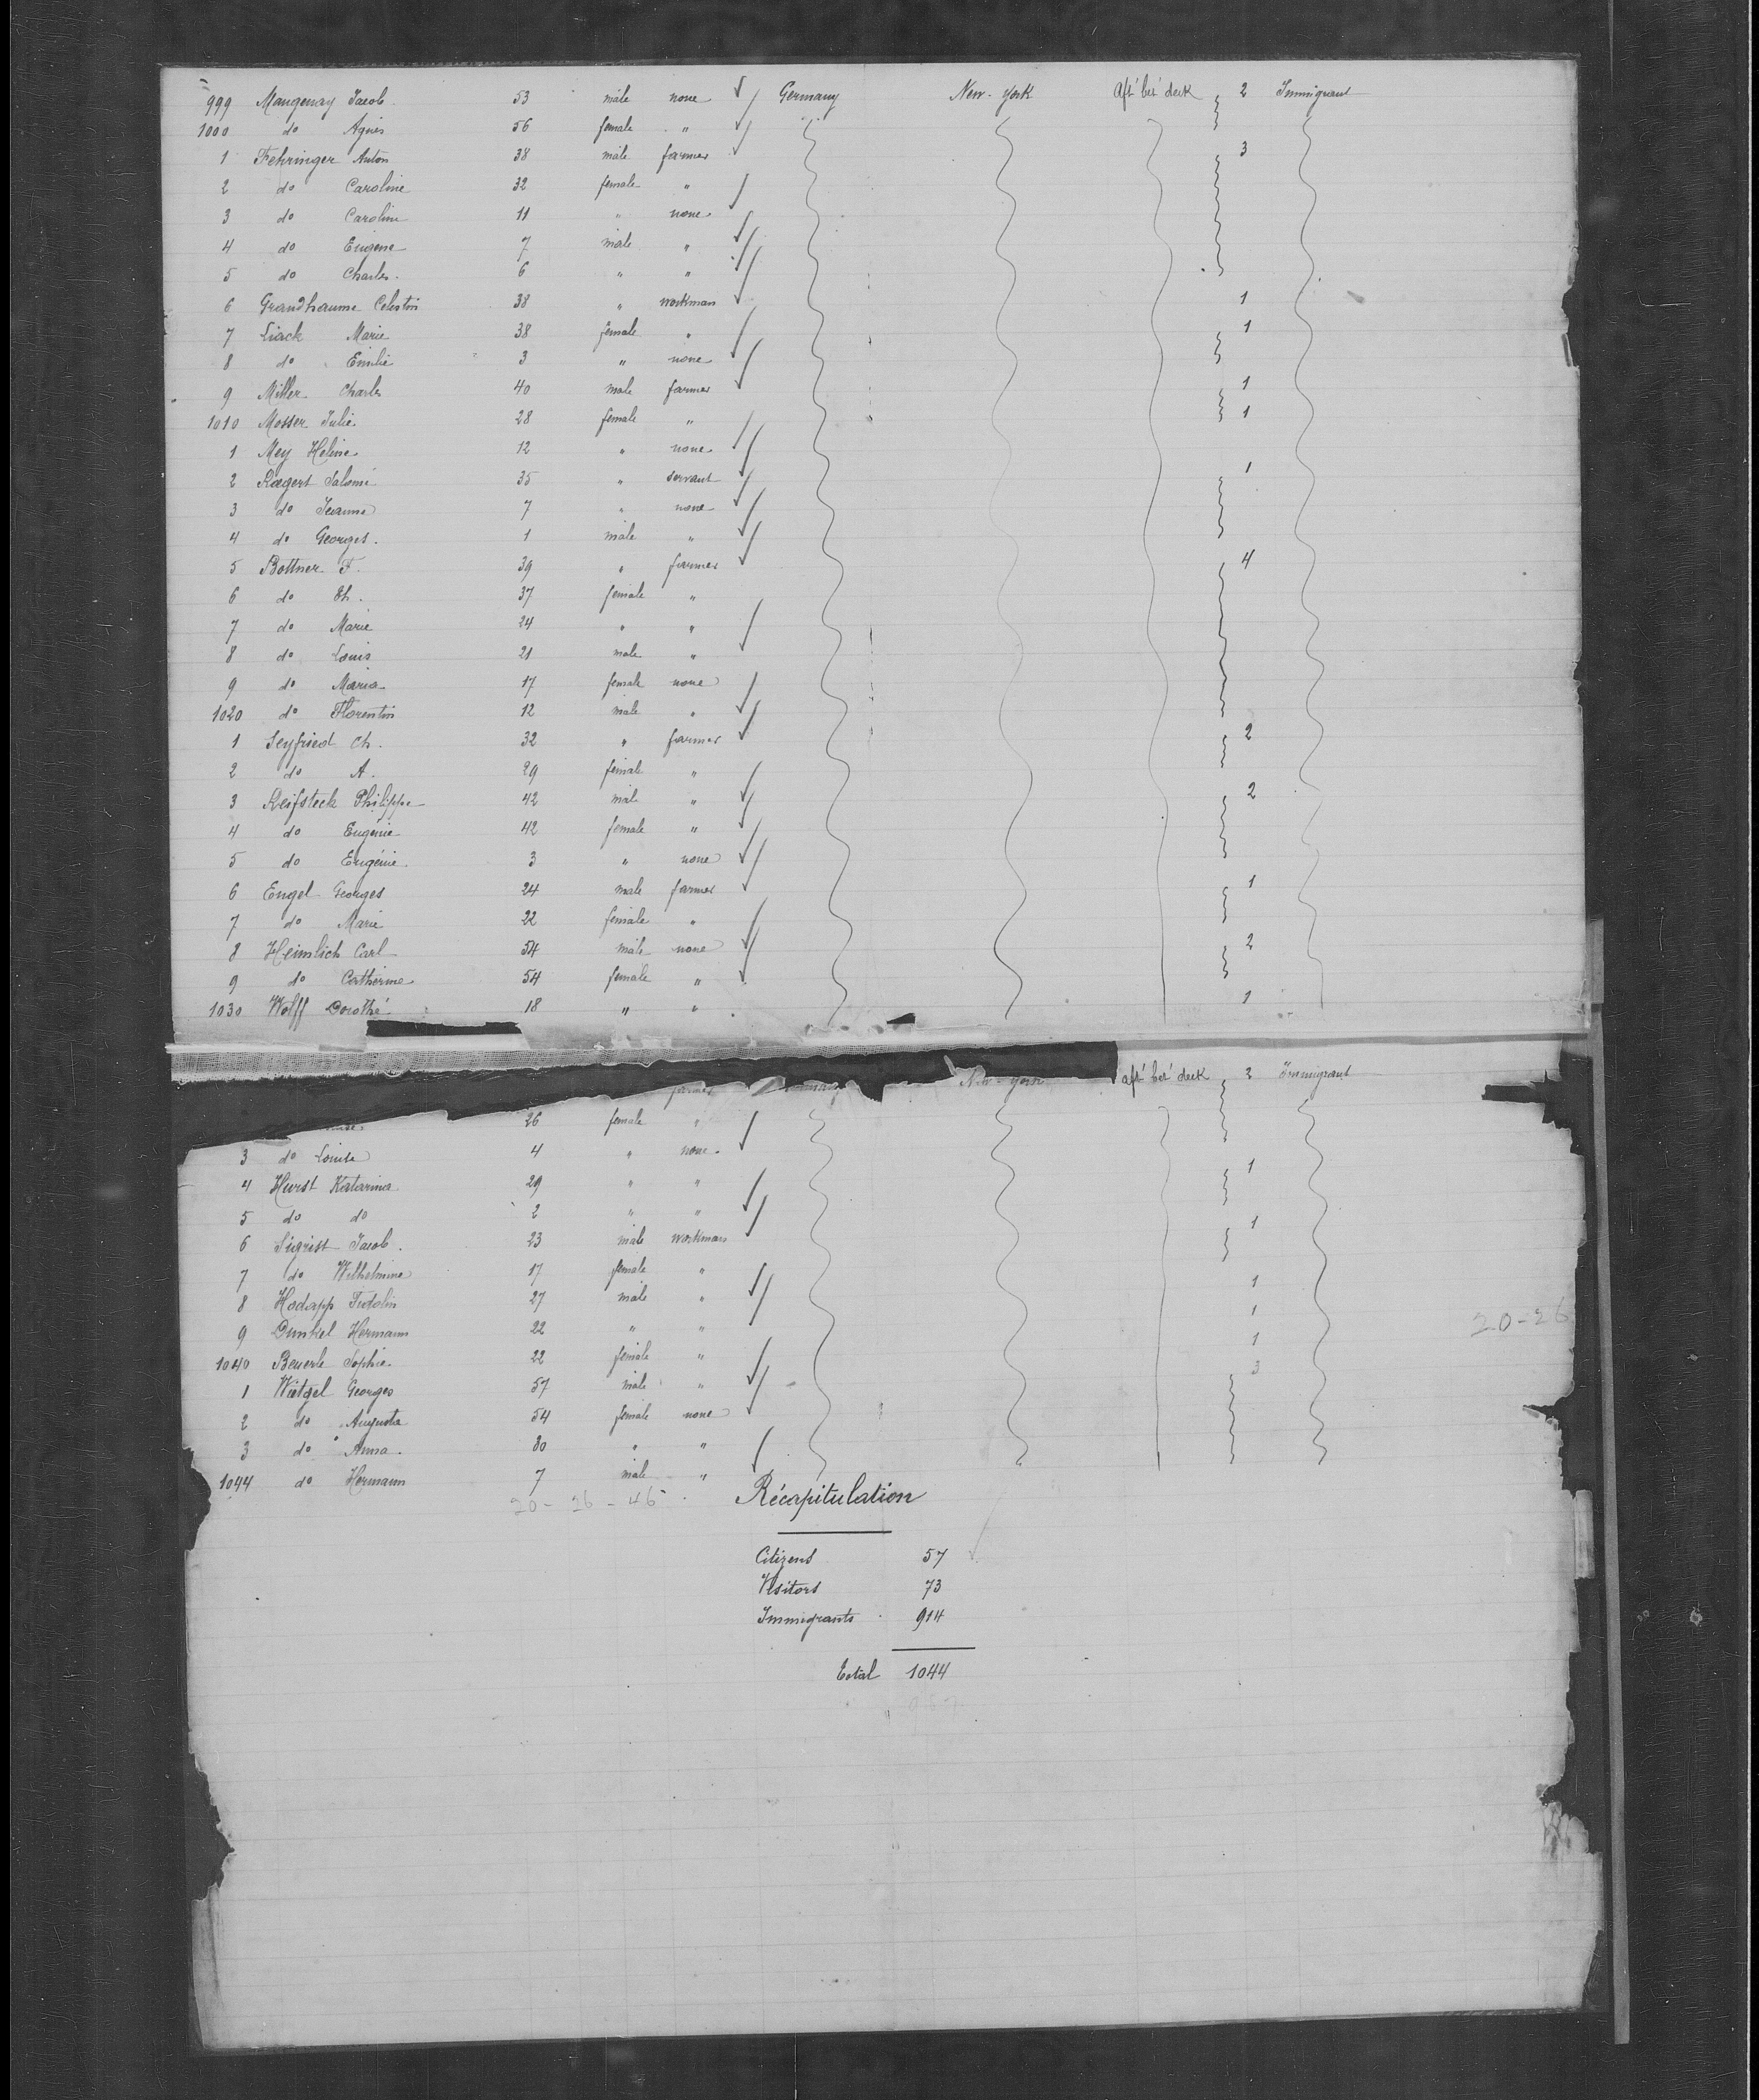 999 Mangenay Jacob 53 male none Germany New-York Aft' bet' deck 2 Immigrant
1000 do Agnes 56 female "
1 Fehringer Anton 38 male farmer 3
2 do Caroline 32 female "
3 do Caroline 11 " none
4 do Eugène 7 male "
5 do Charles 6 " "
6 Grandhaume Celestin 38 " workman 1
7 Liack Marie 38 female " 1
8 do Emilie 3 " none
9 Miller Charles 40 male farmer 1
1010 Mosser Julie 28 female " 1
1 Mey Helène 12 " none
2 Rœgert Salomé 35 " servant 1
3 do Jeanne 7 " none
4 do Georges. 1 male "
5 Bottner F. 39 " farmer 4
6 do Th. 37 female "
7 do Marie 24 " "
8 do Louis 21 male "
9 do Maria 17 female none
1020 do Florentin 12 male "
1 Seyfried Ch. 32 " farmer 2
2 do A. 29 female "
3 Reifsteck Philippe 42 male " 2
4 do Eugénie 42 female "
5 do Eugénie 3 " none
6 Engel Georges 24 male farmer 1
7 do Marie 22 female "
8 Heimlich Carl 54 male none 2
9 do Catherine 54 female "
1030 Wolff Dorothé 18 " " 1
farmer New-York aft' bet' deck 2 Immigrant
26 female "
3 do Louise 4 " none
4 Hurst Katarina 29 " " 1
5 do do 2 " "
6 Sigrist Jacob. 23 male workman 1
7 do Wilhelmine 17 female "
8 Hodapp Fidolin 27 male " 1
9 Dunkel Hermann 22 " " 1
20-26
1040 Beuerle Sophie 22 female " 1
1 Wietzel Georges 57 male " 3
2 do Augusta 54 female none
3 do Anna. 30 " "
1044 do Hermann 7 male "
20-26-46
Récapitulation
Citizens 57
Visitors 73
Immigrants 914
Total 1044